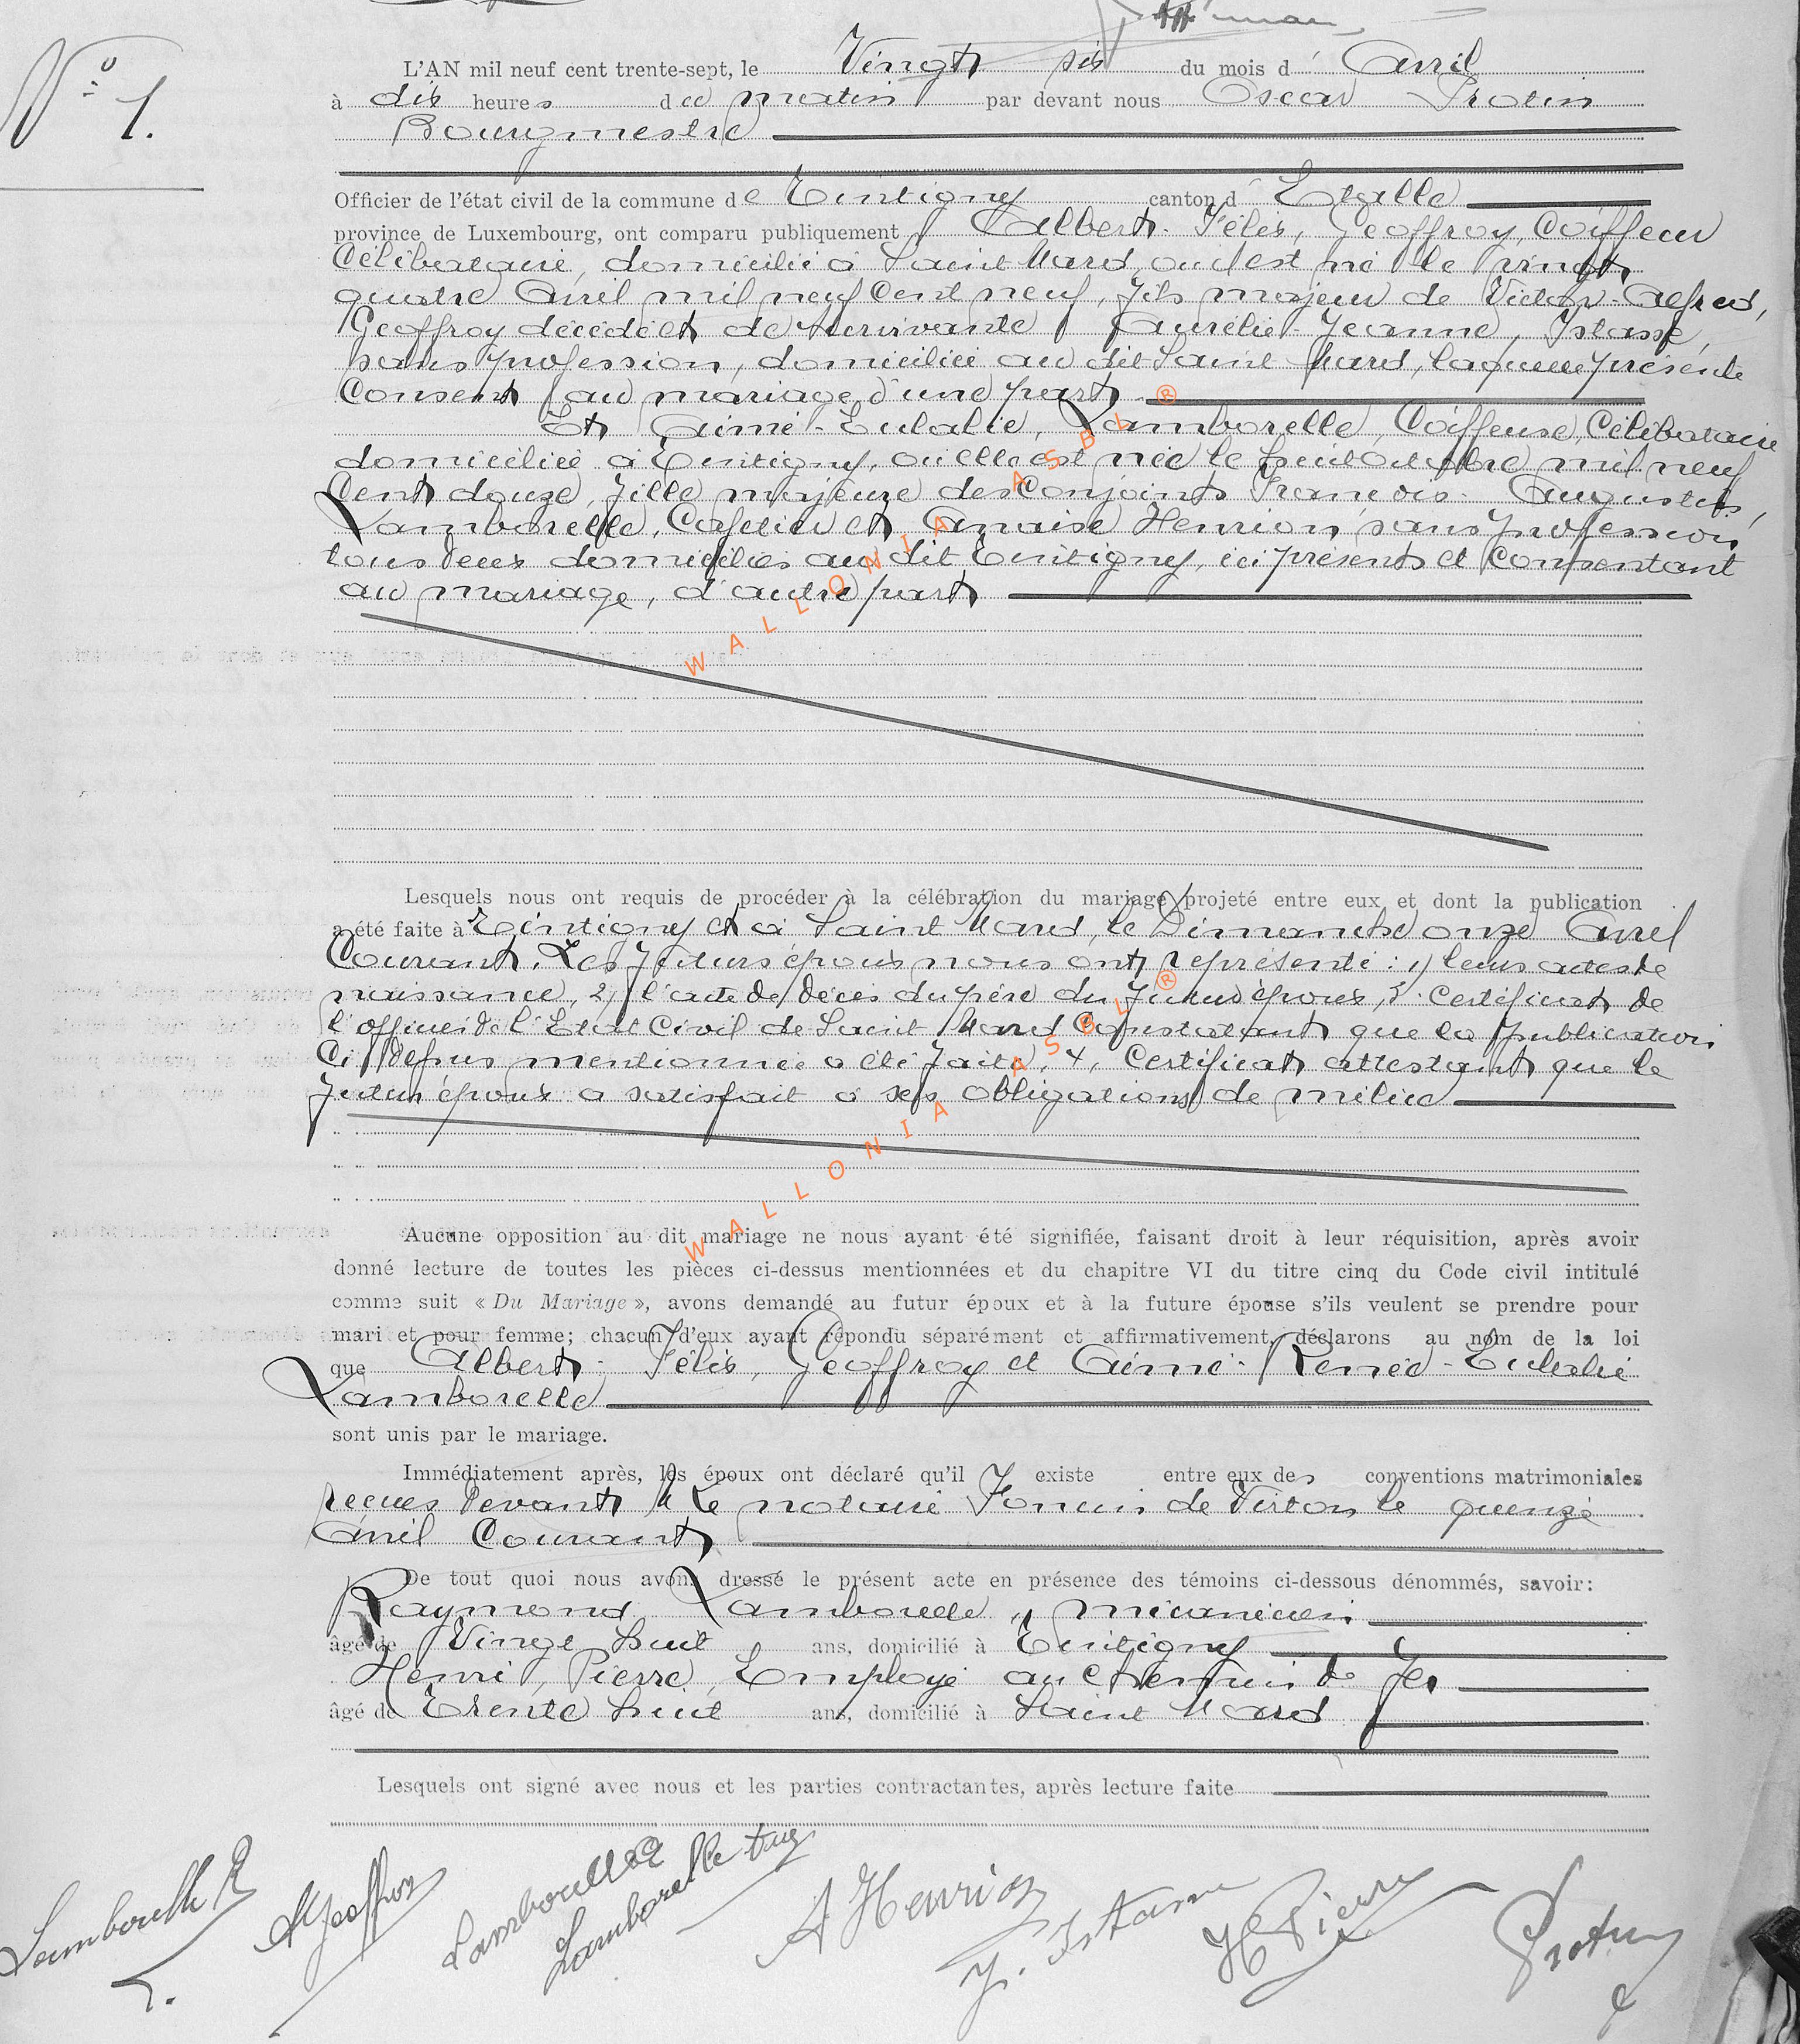 N° 1.
L'AN mil neuf cent trente-sept, le Vingt six du mois d' Avril
à dix heures du matin par devant nous Oscar Protin
Bourgmestre
Officier de l'état civil de la commune de Tintigny canton d' Etalle
province de Luxembourg, ont comparu publiquement Albert-Félix, Geoffroy, Coiffeur
Célibataire, domicilié à Saint Mard, où il est né le vingt
quatre Avril mil neuf Cent neuf, fils majeur de Victor-Alfred,
Geoffroy décédé et de survivante Aurélie-Jeanne, Istasse,
sans profession, domiciliée au dit Saint Mard, laquelle présente
Consent au mariage d'une part
Et Aimé-Eulalie, Lamborelle, Coiffeuse, Célibataire
domiciliée à Tintigny, où elle est née le huit Octobre mil neuf
Cent douze, fille majeure des Conjoints François-Auguste,
Lamborelle, Cafetier et Anaïse Henrion, sans profession
tous deux domiciliés au dit Tintigny, ici présents et Consentant
au mariage, d'autre part
Lesquels nous ont requis de procéder à la célébration du mariage projeté entre eux et dont la publication
a été faite à Tintigny et à Saint Mard, le Dimanche onze Avril
Courant. Les futurs époux nous ont représenté : 1) leurs actes de
naissance, 2) l'acte de décès du père du futur époux, 3. Certificat de
l'officier de l'Etat Civil de Saint Mard Constatant que la publication
Ci dessus mentionnée a été faite, 4, Certificat attestant que le
futur époux a satisfait à ses obligations de milice
Aucune opposition au dit mariage ne nous ayant été signifiée, faisant droit à leur réquisition, après avoir
donné lecture de toutes les pièces ci-dessus mentionnées et du chapitre VI du titre cinq du Code civil intitulé
comme suit « Du Mariage », avons demandé au futur époux et à la future épouse s'ils veulent se prendre pour
mari et pour femme; chacun d'eux ayant répondu séparément et affirmativement, déclarons au nom de la loi
que Albert-Félix, Geoffroy et Aimé-Renée-Eulalie
Lamborelle
sont unis par le mariage.
Immédiatement après, les époux ont déclaré qu'il existe entre eux des conventions matrimoniales
reçues devant Me notaire de Virton le quinze
Avril Courant
De tout quoi nous avons dressé le présent acte en présence des témoins ci-dessous dénommés, savoir:
Raymond Lamborelle, mécanicien
âgé de Vingt huit ans, domicilié à Tintigny
Henri, Pierre, Employé au chemin de fer
âgé de Trente huit ans, domicilié à Saint Mard
Lesquels ont signé avec nous et les parties contractantes, après lecture faite
Lamborelle R
A Geoffroy
Lamborelle
Lamborelle Aug
A Henrion
J. Istasse
H Pierre
Protin
WALLONIA ASBL ®
WALLONIA ASBL ®